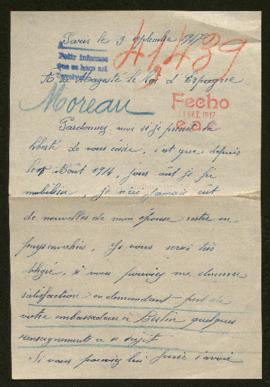 Paris le 3 septembre 1917
41439
Pedir informes
A Sa Majesté le Roi d'Espagne
Moreau
Fecho
SET. 1917
Pardonnez moi si je prends la
liberté de vous écrire, c'est que depuis
le Août 1914, jour où je fus
mobilisé, je n'ai jamais eu
de nouvelles de mon épouse restée en
pays envahis. Je vous serai très
obligé, si vous pouviez me donner
satisfaction en demandant par
votre ambassadeur à Berlin quelques
renseignements à ce sujet.
Si vous pouviez lui faire savoir